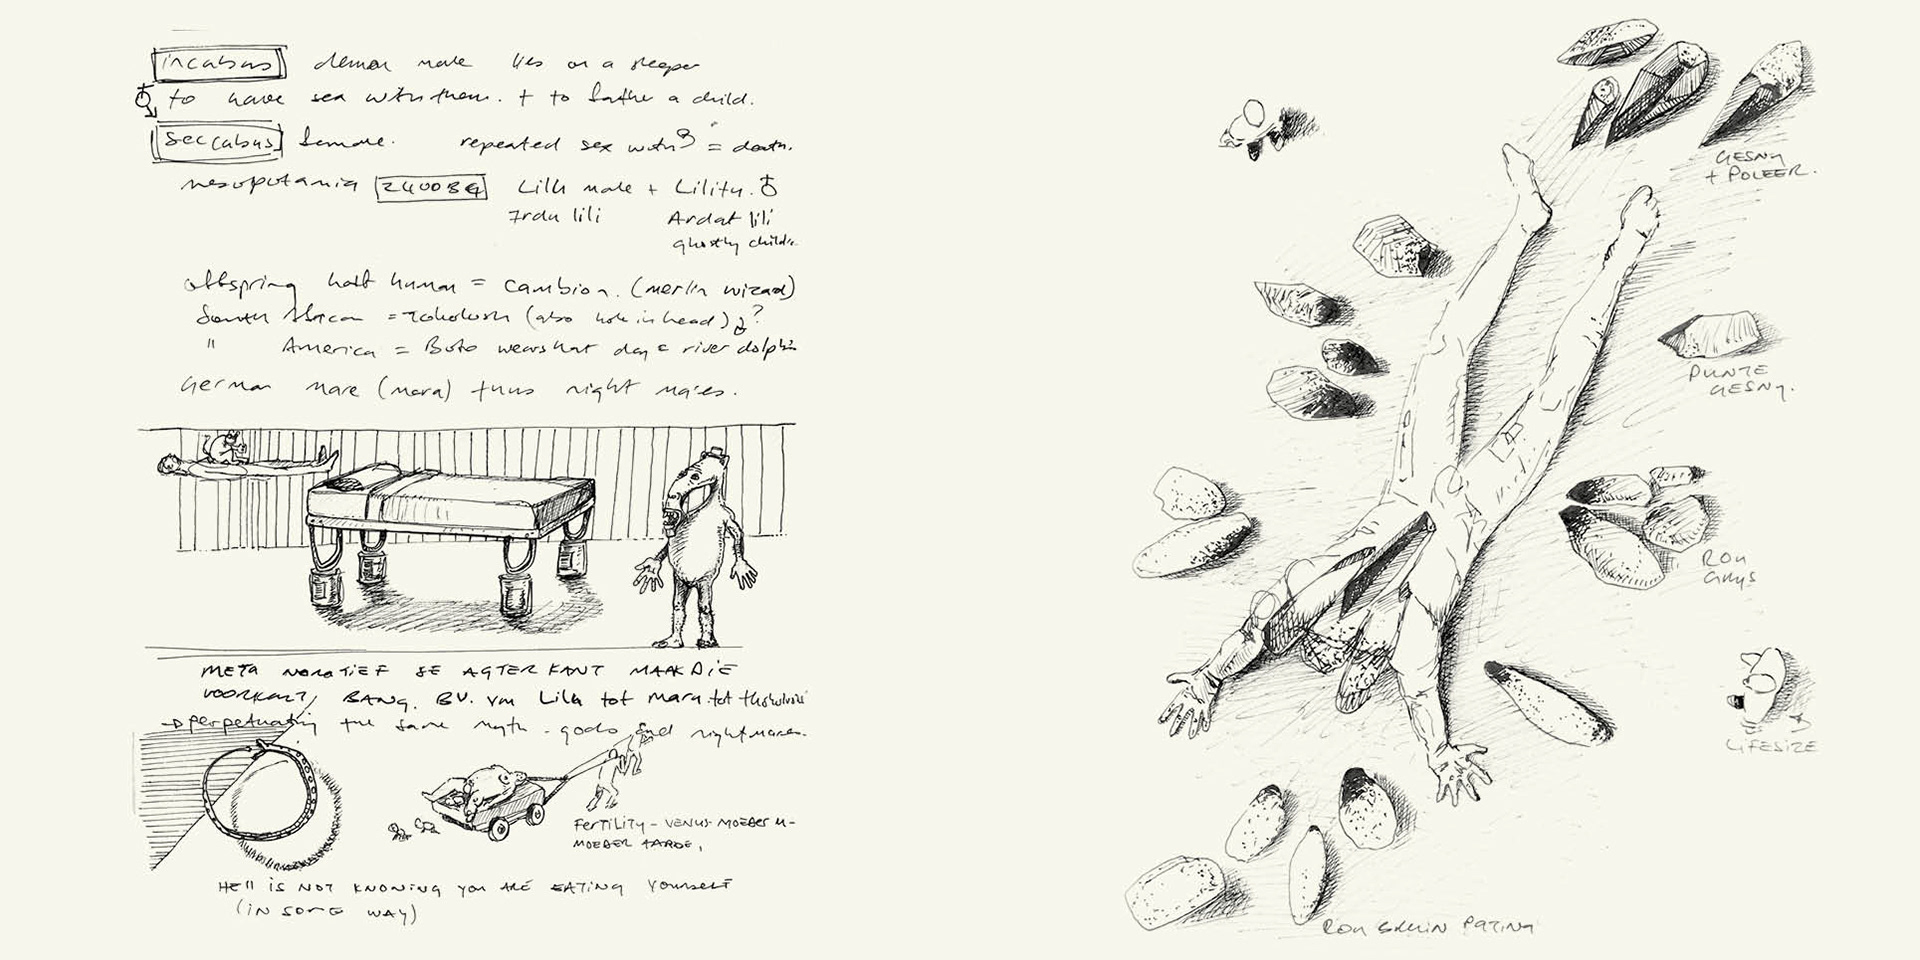 incabus demon male lies on a sleeper
to have sex with them. + to father a child.
Seccabus female. repeated sex with = death.
mesopotamia 2400 BC Lilu male + Lilitu.
Irdu lili Ardat lili
ghostly childr.
offspring half human = cambion. (merlin wizard)
South African = Tokolosh (also hole in head) ?
" America = Boto wears hat day = river dolphin
German mare (mara) thus night mares.
META NARATIEF SE AGTER KANT MAAK DIE
VOORKANT BANG. BV. van Lilu tot Mara tot
perpetuating the same myth - gods and nightmares.
FERTILITY - VENUS - MOEDER
MOEDER AARDE,
HELL IS NOT KNOWING YOU ARE EATING YOURSELF
(IN SOME WAY)
GESNY
+ POLEER.
PUNTE
GESNY.
ROU
GRYS
LIFESIZE
ROU BRUIN PATINA